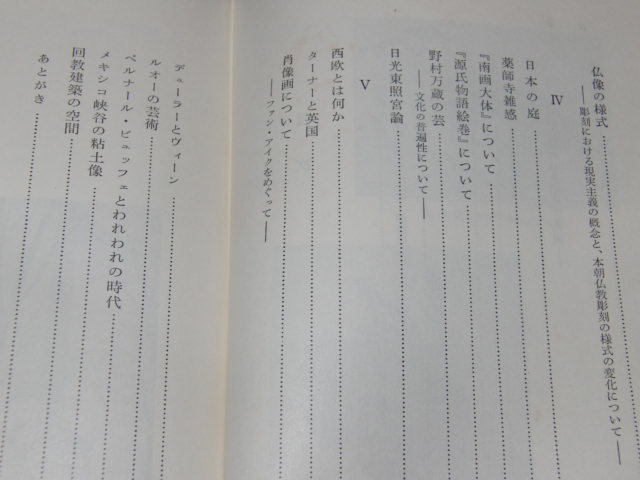 仏像の様式
――彫刻における現実主義の概念と、本朝仏教彫刻の様式の変化について――
Ⅳ
日本の庭
薬師寺雑感
『南画大体』について
『源氏物語絵巻』について
野村万蔵の芸
――文化の普遍性について――
日光東照宮論
Ⅴ
西欧とは何か
ターナーと英国
肖像画について
――ファン・アイクをめぐって――
デューラーとヴィーン
ルオーの芸術
ベルナール・ビュッフェとわれわれの時代
メキシコ峡谷の粘土像
回教建築の空間
あとがき